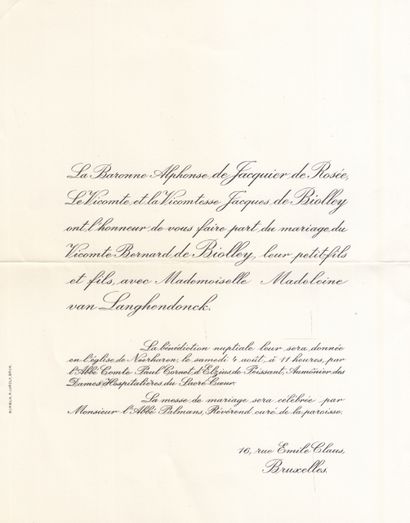 La Baronne Alphonse de Jacquier de Rosée,
Le Vicomte et la Vicomtesse Jacques de Biolley
ont l'honneur de vous faire part du mariage du
Vicomte Bernard de Biolley, leur petit-fils
et fils, avec Mademoiselle Madeleine
van Langhendonck.
La bénédiction nuptiale leur sera donnée
en l'église de Neerharen, le samedi 4 août, à 11 heures, par
l'Abbé Comte Paul Cornet d'Elzius de Peissant, Aumônier des
Dames Hospitalières du Sacré Cœur.
La messe de mariage sera célébrée par
Monsieur l'Abbé Palmans, Révérend curé de la paroisse.
16, rue Emile Claus,
Bruxelles.